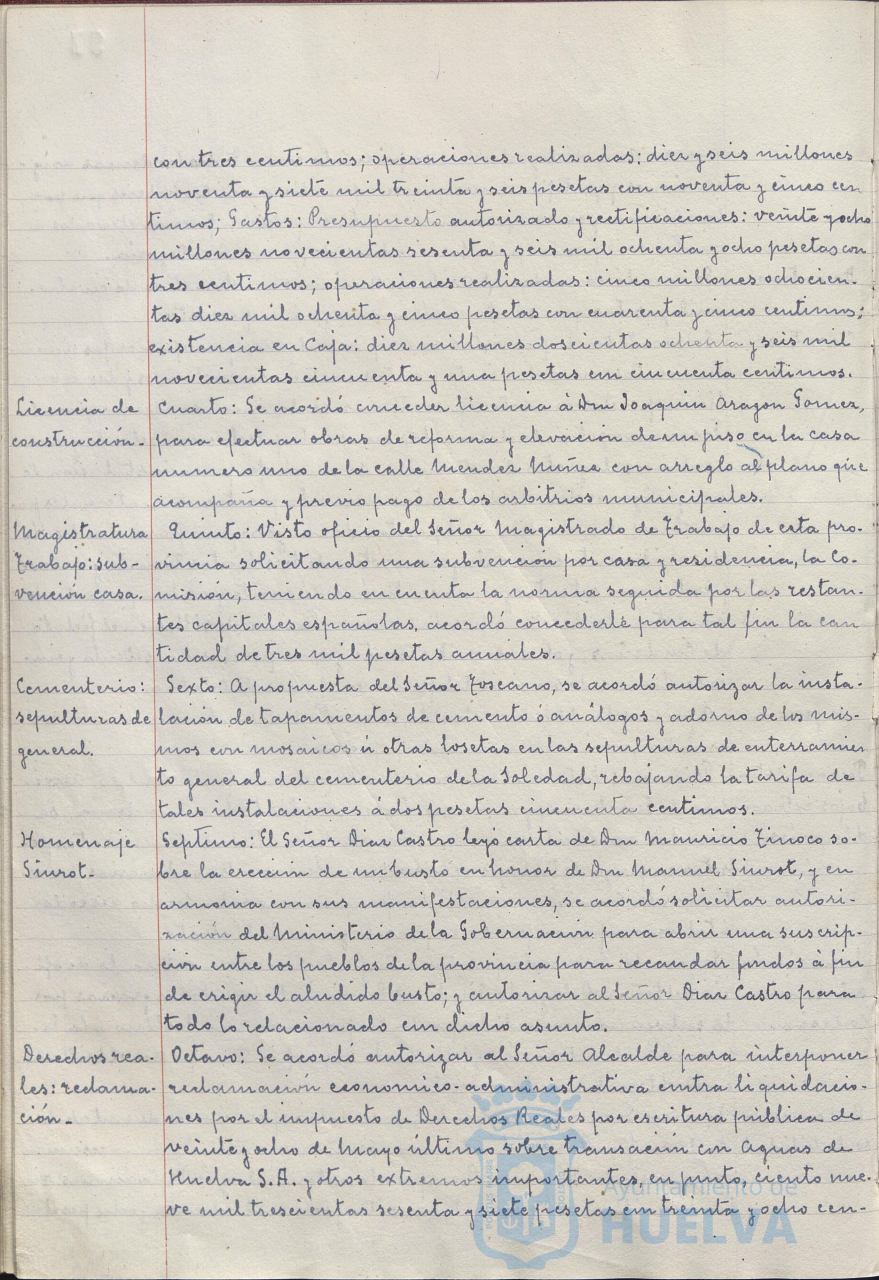 con tres centimos; operaciones realizadas: diez y seis millones
noventa y siete mil treinta y seis pesetas con noventa y cinco cen
timos; Gastos: Presupuesto autorizado y rectificaciones: veinte y ocho
millones novecientas sesenta y seis mil ochenta y ocho pesetas con
tres centimos; operaciones realizadas: cinco millones ochocien-
tas diez mil ochenta y cinco pesetas con cuarenta y cinco centimos;
existencia en Caja: diez millones doscientas ochenta y seis mil
novecientas cincuenta y una pesetas con cincuenta centimos.
Licencia de
construcción.-
Cuarto: Se acordó conceder licencia á Don Joaquin Aragon Gomez,
para efectuar obras de reforma y elevación de un piso en la casa
numero uno de la calle Mendez Nuñez con arreglo al plano que
acompaña y previo pago de los arbitrios municipales.
Magistratura
Trabajo: sub-
vención casa.
Quinto: Visto oficio del Señor Magistrado de Trabajo de esta pro-
vincia solicitando una subvención por casa y residencia, la Co-
misión, teniendo en cuenta la norma seguida por las restan-
tes capitales españolas, acordó concederle para tal fin la can
tidad de tres mil pesetas anuales.
Cementerio:
sepulturas de
general.
Sexto: A propuesta del Señor Toscano, se acordó autorizar la insta-
lación de tapamentos de cemento ó análogos y adorno de los mis-
mos con mosaicos ú otras losetas en las sepulturas de enterramien
to general del cementerio de la Soledad, rebajando la tarifa de
tales instalaciones á dos pesetas cincuenta centimos.
Homenaje
Siurot.-
Septimo: El Señor Diaz Castro leyó carta de Don Mauricio Tinoco so-
bre la erección de un busto en honor de Don Manuel Siurot, y en
armonia con sus manifestaciones, se acordó solicitar autori-
zación del Ministerio de la Gobernación para abrir una suscrip-
ción entre los pueblos de la provincia para recaudar fondos á fin
de erigir el aludido busto; y autorizar al Señor Diaz Castro para
todo lo relacionado con dicho asunto.
Derechos rea-
les: reclama-
ción.-
Octavo: Se acordó autorizar al Señor Alcalde para interponer
reclamación economico-administrativa contra liquidacio-
nes por el impuesto de Derechos Reales por escritura pública de
veinte y ocho de Mayo último sobre transación con Aguas de
Huelva S.A. y otros extremos importantes, en junto, ciento nue-
ve mil trescientas sesenta y siete pesetas con treinta y ocho cen-
Ayuntamiento de
HUELVA